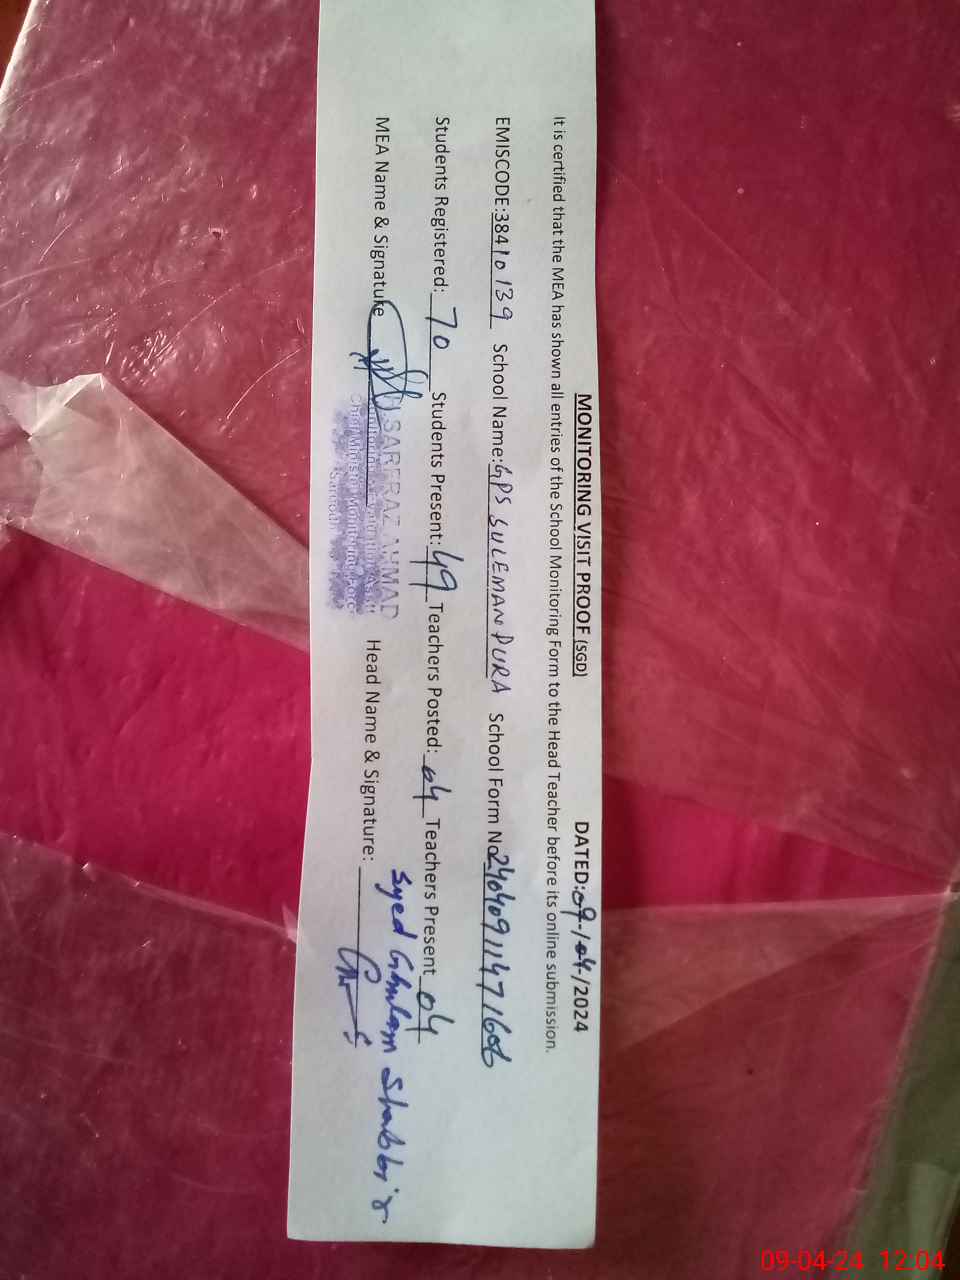 MONITORING VISIT PROOF (SGD) DATED:09-/04-/2024
It is certified that the MEA has shown all entries of the School Monitoring Form to the Head Teacher before its online submission.
EMISCODE:38410139 School Name: GPS SULEMAN PURA School Form No
Students Registered: 70 Students Present: 49 Teachers Posted: 04 Teachers Present 04
MEA Name & Signature SARFRAZ AHMAD Head Name & Signature: Syed Ghulam Shabbir
Chief Minister Monitoring Force
09-04-24 12:04